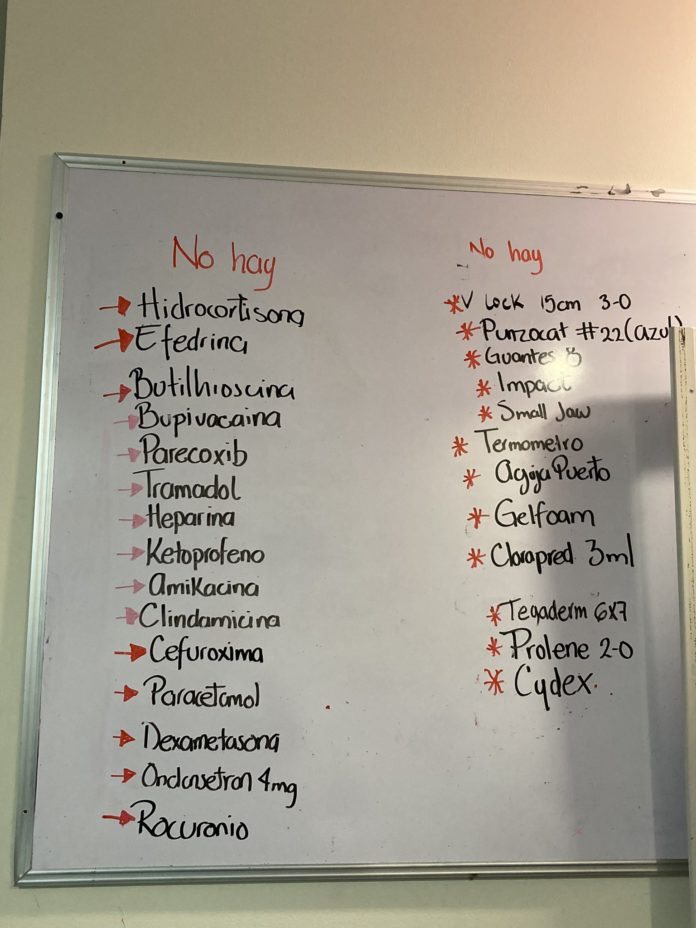 No hay
Hidrocortisona
Efedrina
Butilhioscina
Bupivacaina
Parecoxib
Tramadol
Heparina
Ketoprofeno
Amikacina
Clindamicina
Cefuroxima
Paracetamol
Dexametasona
Ondansetron 4mg
Rocuronio
No hay
* V Lock 15cm 3-0
* Punzocat #22 (azul)
* Guantes
* Impact
* Small Jaw
* Termometro
* Aguja Puerto
* Gelfoam
* Clorapred 3ml
* Tegaderm 6x7
* Prolene 2-0
* Cydex.